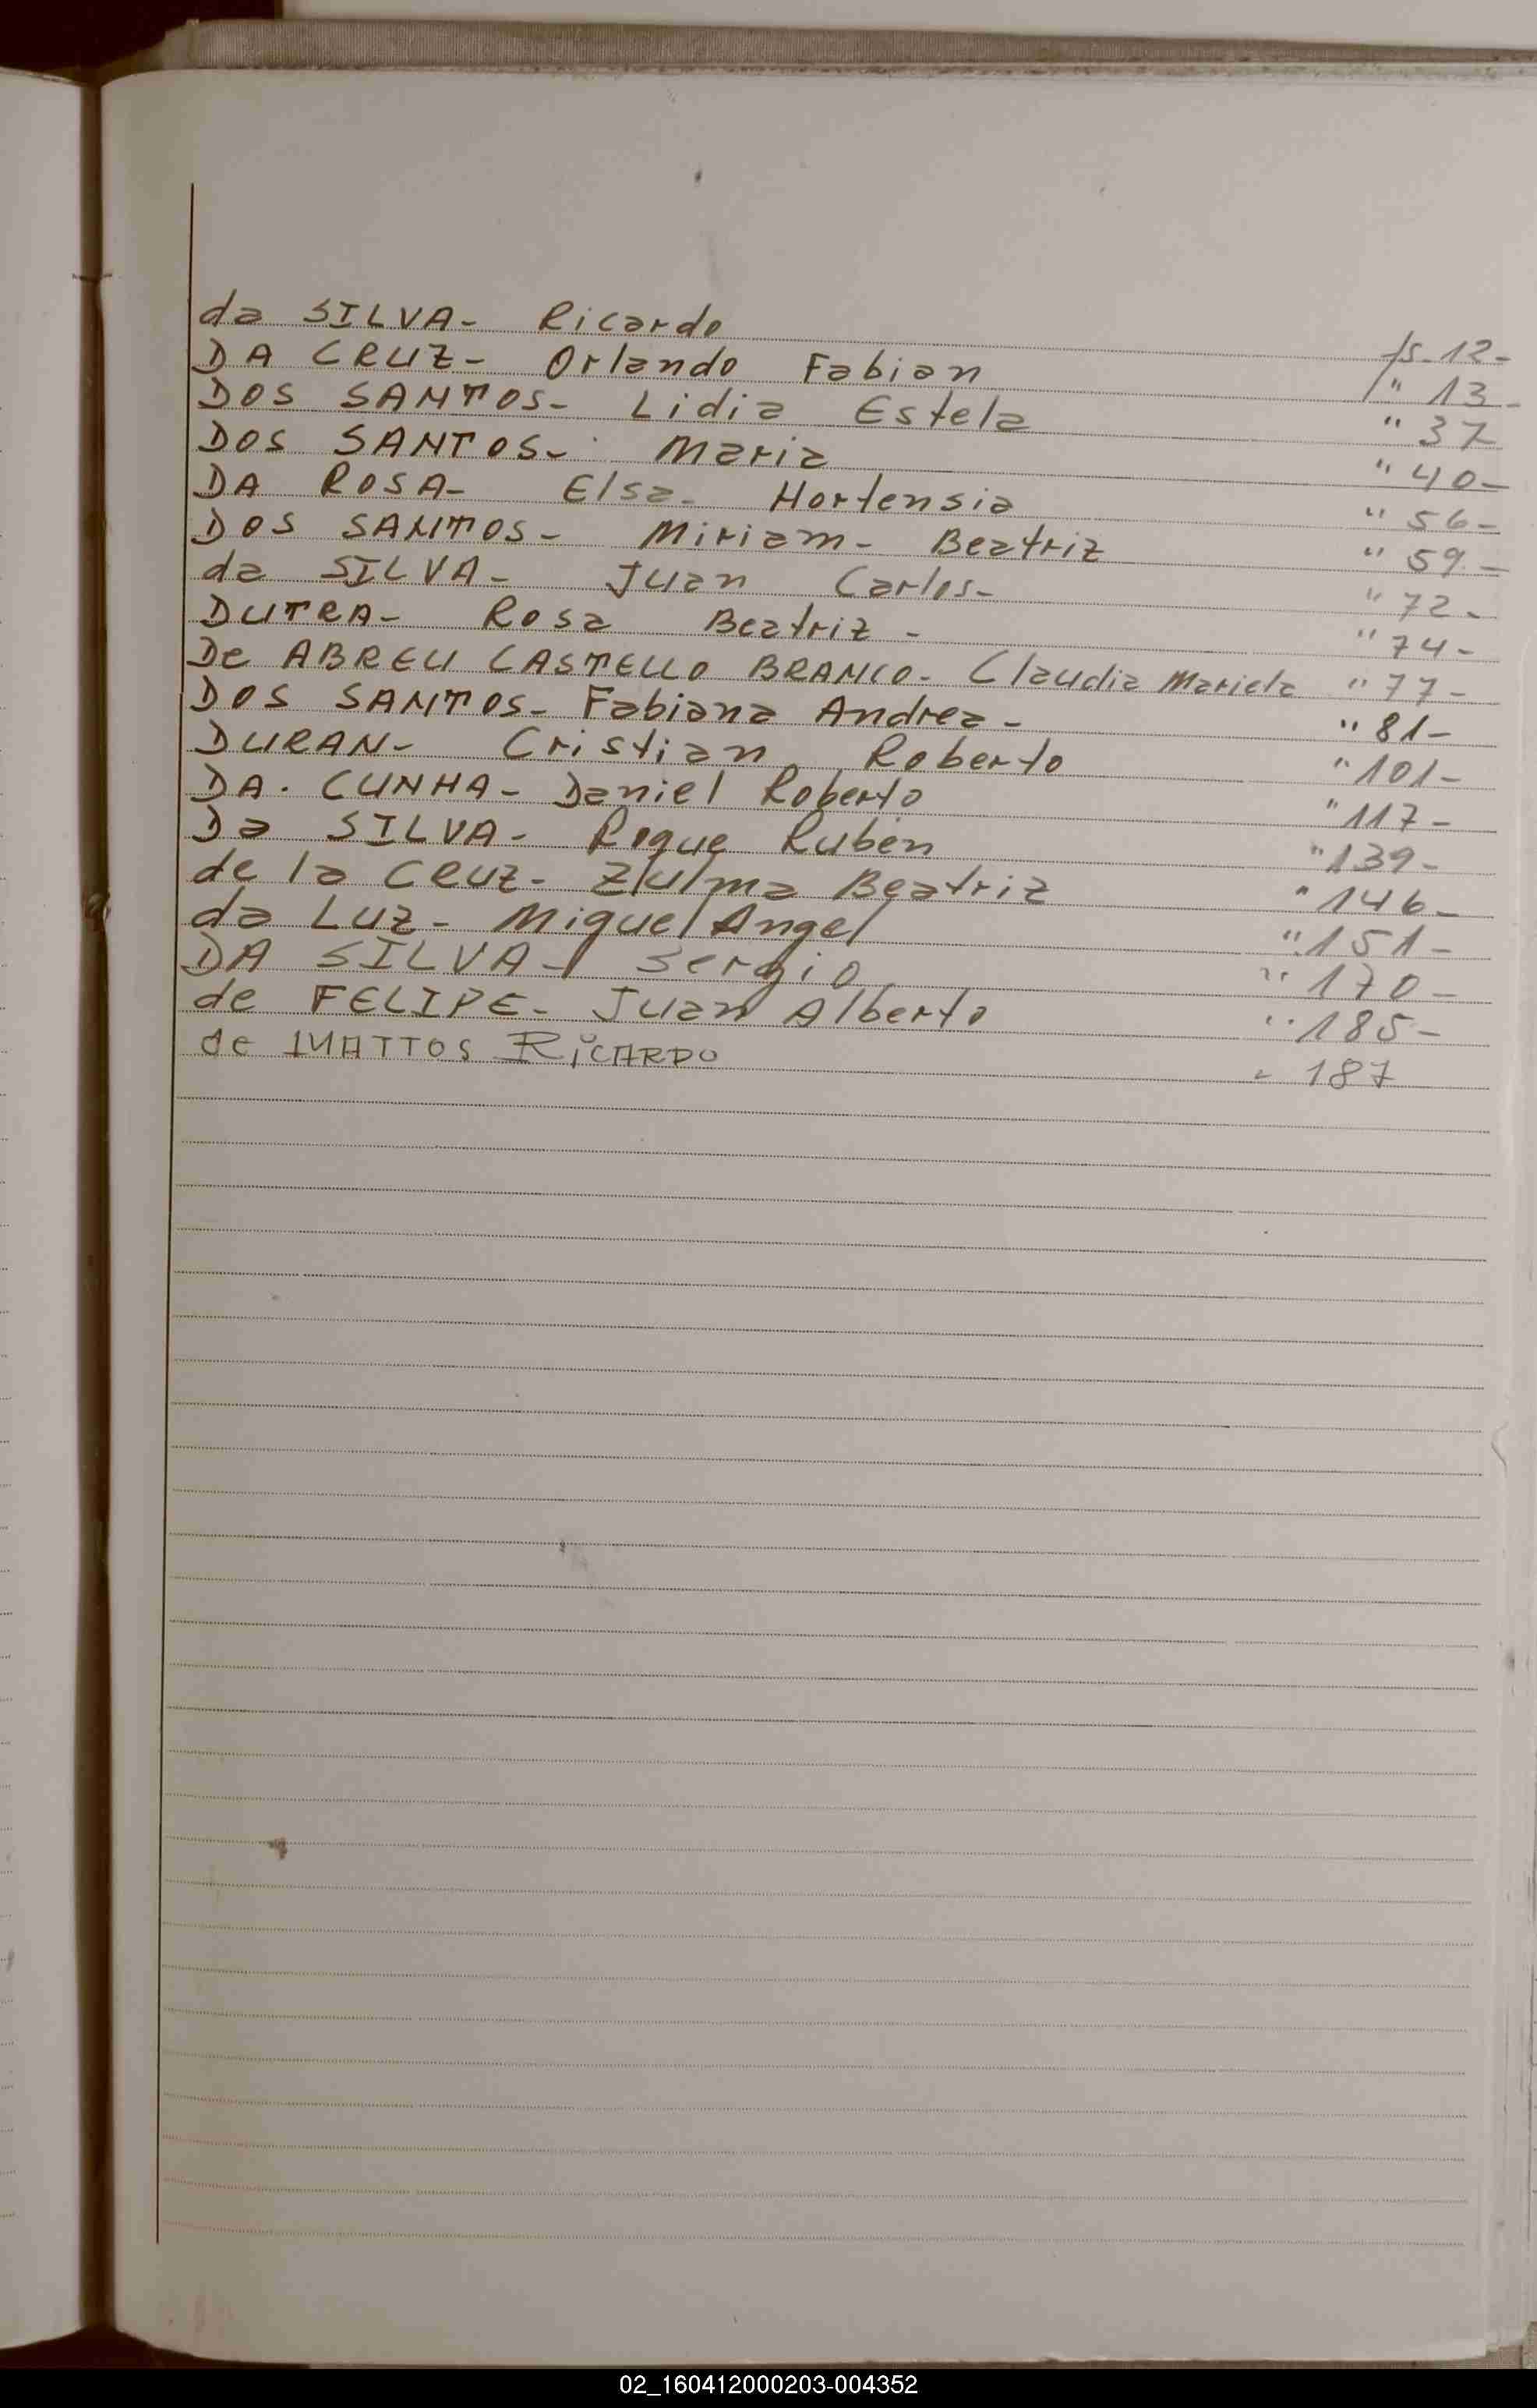 da SILVA- Ricardo fs-12-
DA CRUZ- Orlando Fabian " 13-
DOS SANTOS- Lidia Estela " 37
DOS SANTOS- Maria " 40-
DA ROSA- Elsa- Hortensia " 56-
DOS SANTOS- Miriam- Beatriz " 59-
da SILVA- Juan Carlos- " 72-
DUTRA- Rosa Beatriz- " 74-
De ABREU CASTELLO BRANCO- Claudia Mariela " 77-
DOS SANTOS- Fabiana Andrea- " 81-
DURAN- Cristian Roberto " 101-
DA. CUNHA- Daniel Roberto " 117-
Da SILVA- Roque Rubén " 139-
de la CRUZ- Zulma Beatriz " 146-
da LUZ- Miguel Angel " 151-
DA SILVA- Sergio " 170-
de FELIPE- Juan Alberto " 185-
de MATTOS RiCARDO " 187
02_160412000203-004352